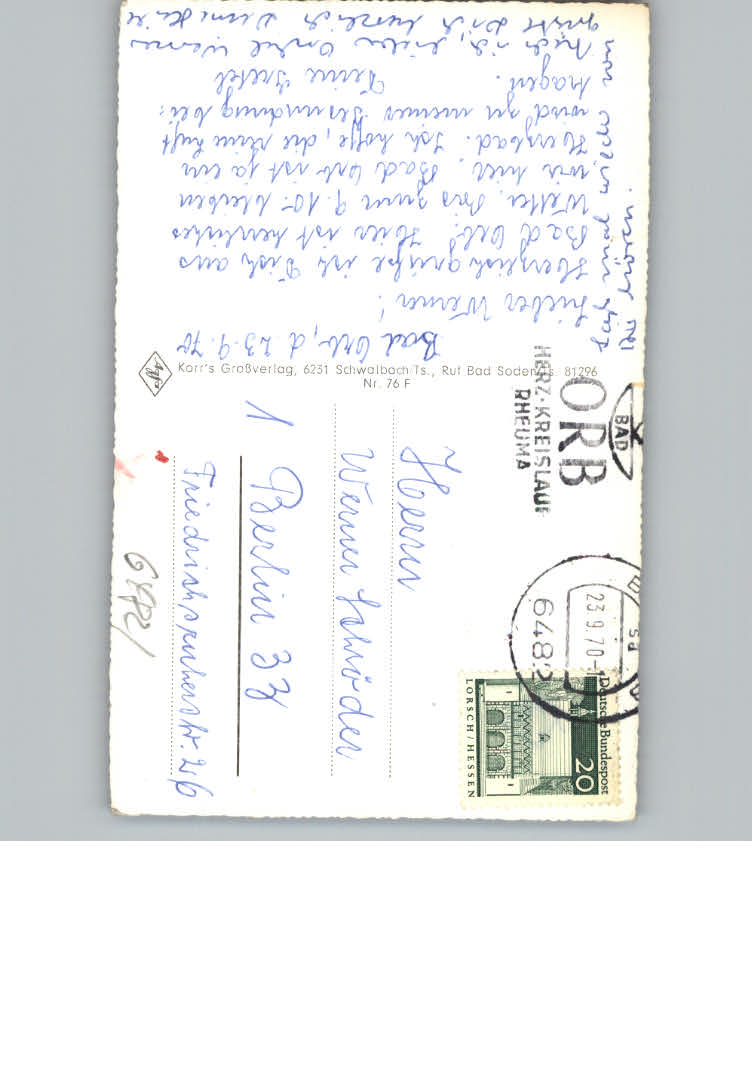 Bad Orb, d 23.9.70
Lieber Werner!
Herzlich grüße ich Dich aus
Bad Orb. Hier ist herrliches
Wetter. Bis zum 9.10. bleiben
wir hier. Bad Orb ist ja ein
Herzbad. Ich hoffe, die reine Luft
wird zu meiner Gesundung bei-
tragen.
Deine Gretel
Auch ich, lieber Onkel Werner
grüßt Dich herzlich Deine
Korr's Großverlag, 6231 Schwalbach Ts., Ruf Bad Soden Ts. 81296
Nr. 76 F
Agfa
BAD
ORB
HERZ-KREISLAUF
RHEUMA
6482
23.9.70
Deutsche Bundespost
20
LORSCH/HESSEN
Herrn
Werner Schröder
1 Berlin 33
Friedrichsruherstr. 26